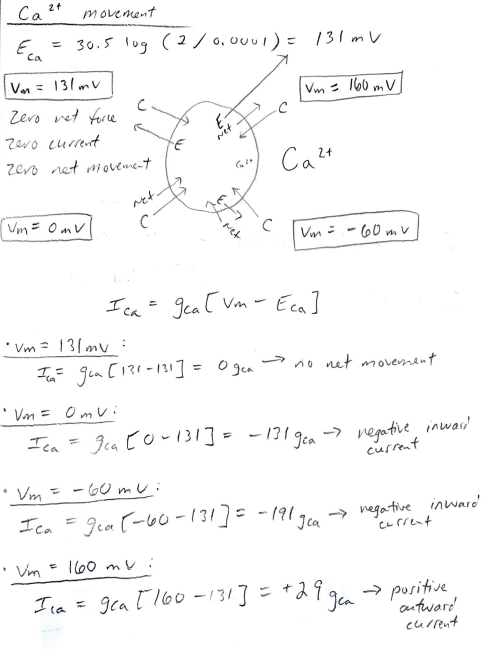 Ca²⁺ movement
E_Ca = 30.5 log (2/0.0001) = 131 mV
Vm = 131 mV
Vm = 160 mV
Zero net force
Zero current
Zero net movement
C
E
E
Net
C
Ca²⁺
Ca²⁺
Net
C
E
Net
C
Vm = 0 mV
Vm = -60 mV
I_Ca = g_Ca [Vm - E_Ca]
· Vm = 131 mV :
I_Ca = g_Ca [131-131] = 0 g_Ca → no net movement
· Vm = 0 mV :
I_Ca = g_Ca [0-131] = -131 g_Ca → negative inward
current
· Vm = -60 mV :
I_Ca = g_Ca [-60-131] = -191 g_Ca → negative inward
current
· Vm = 160 mV :
I_Ca = g_Ca [160-131] = +29 g_Ca → positive
outward
current